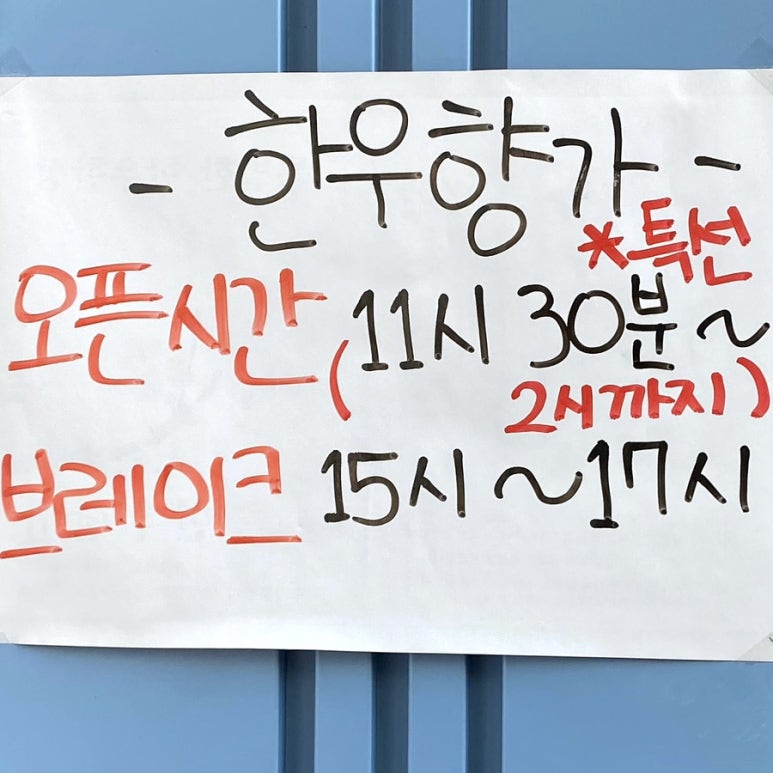 - 한우향가 -
*특선
오픈시간 (11시 30분~
2시까지)
브레이크 15시~17시